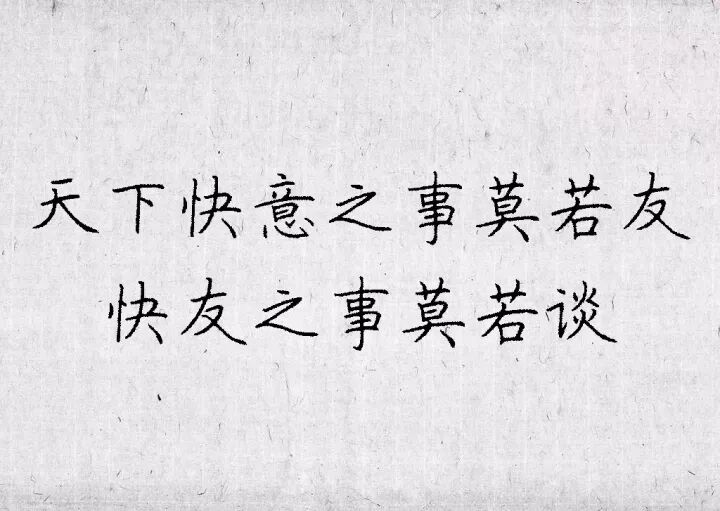 天下快意之事莫若友
快友之事莫若谈